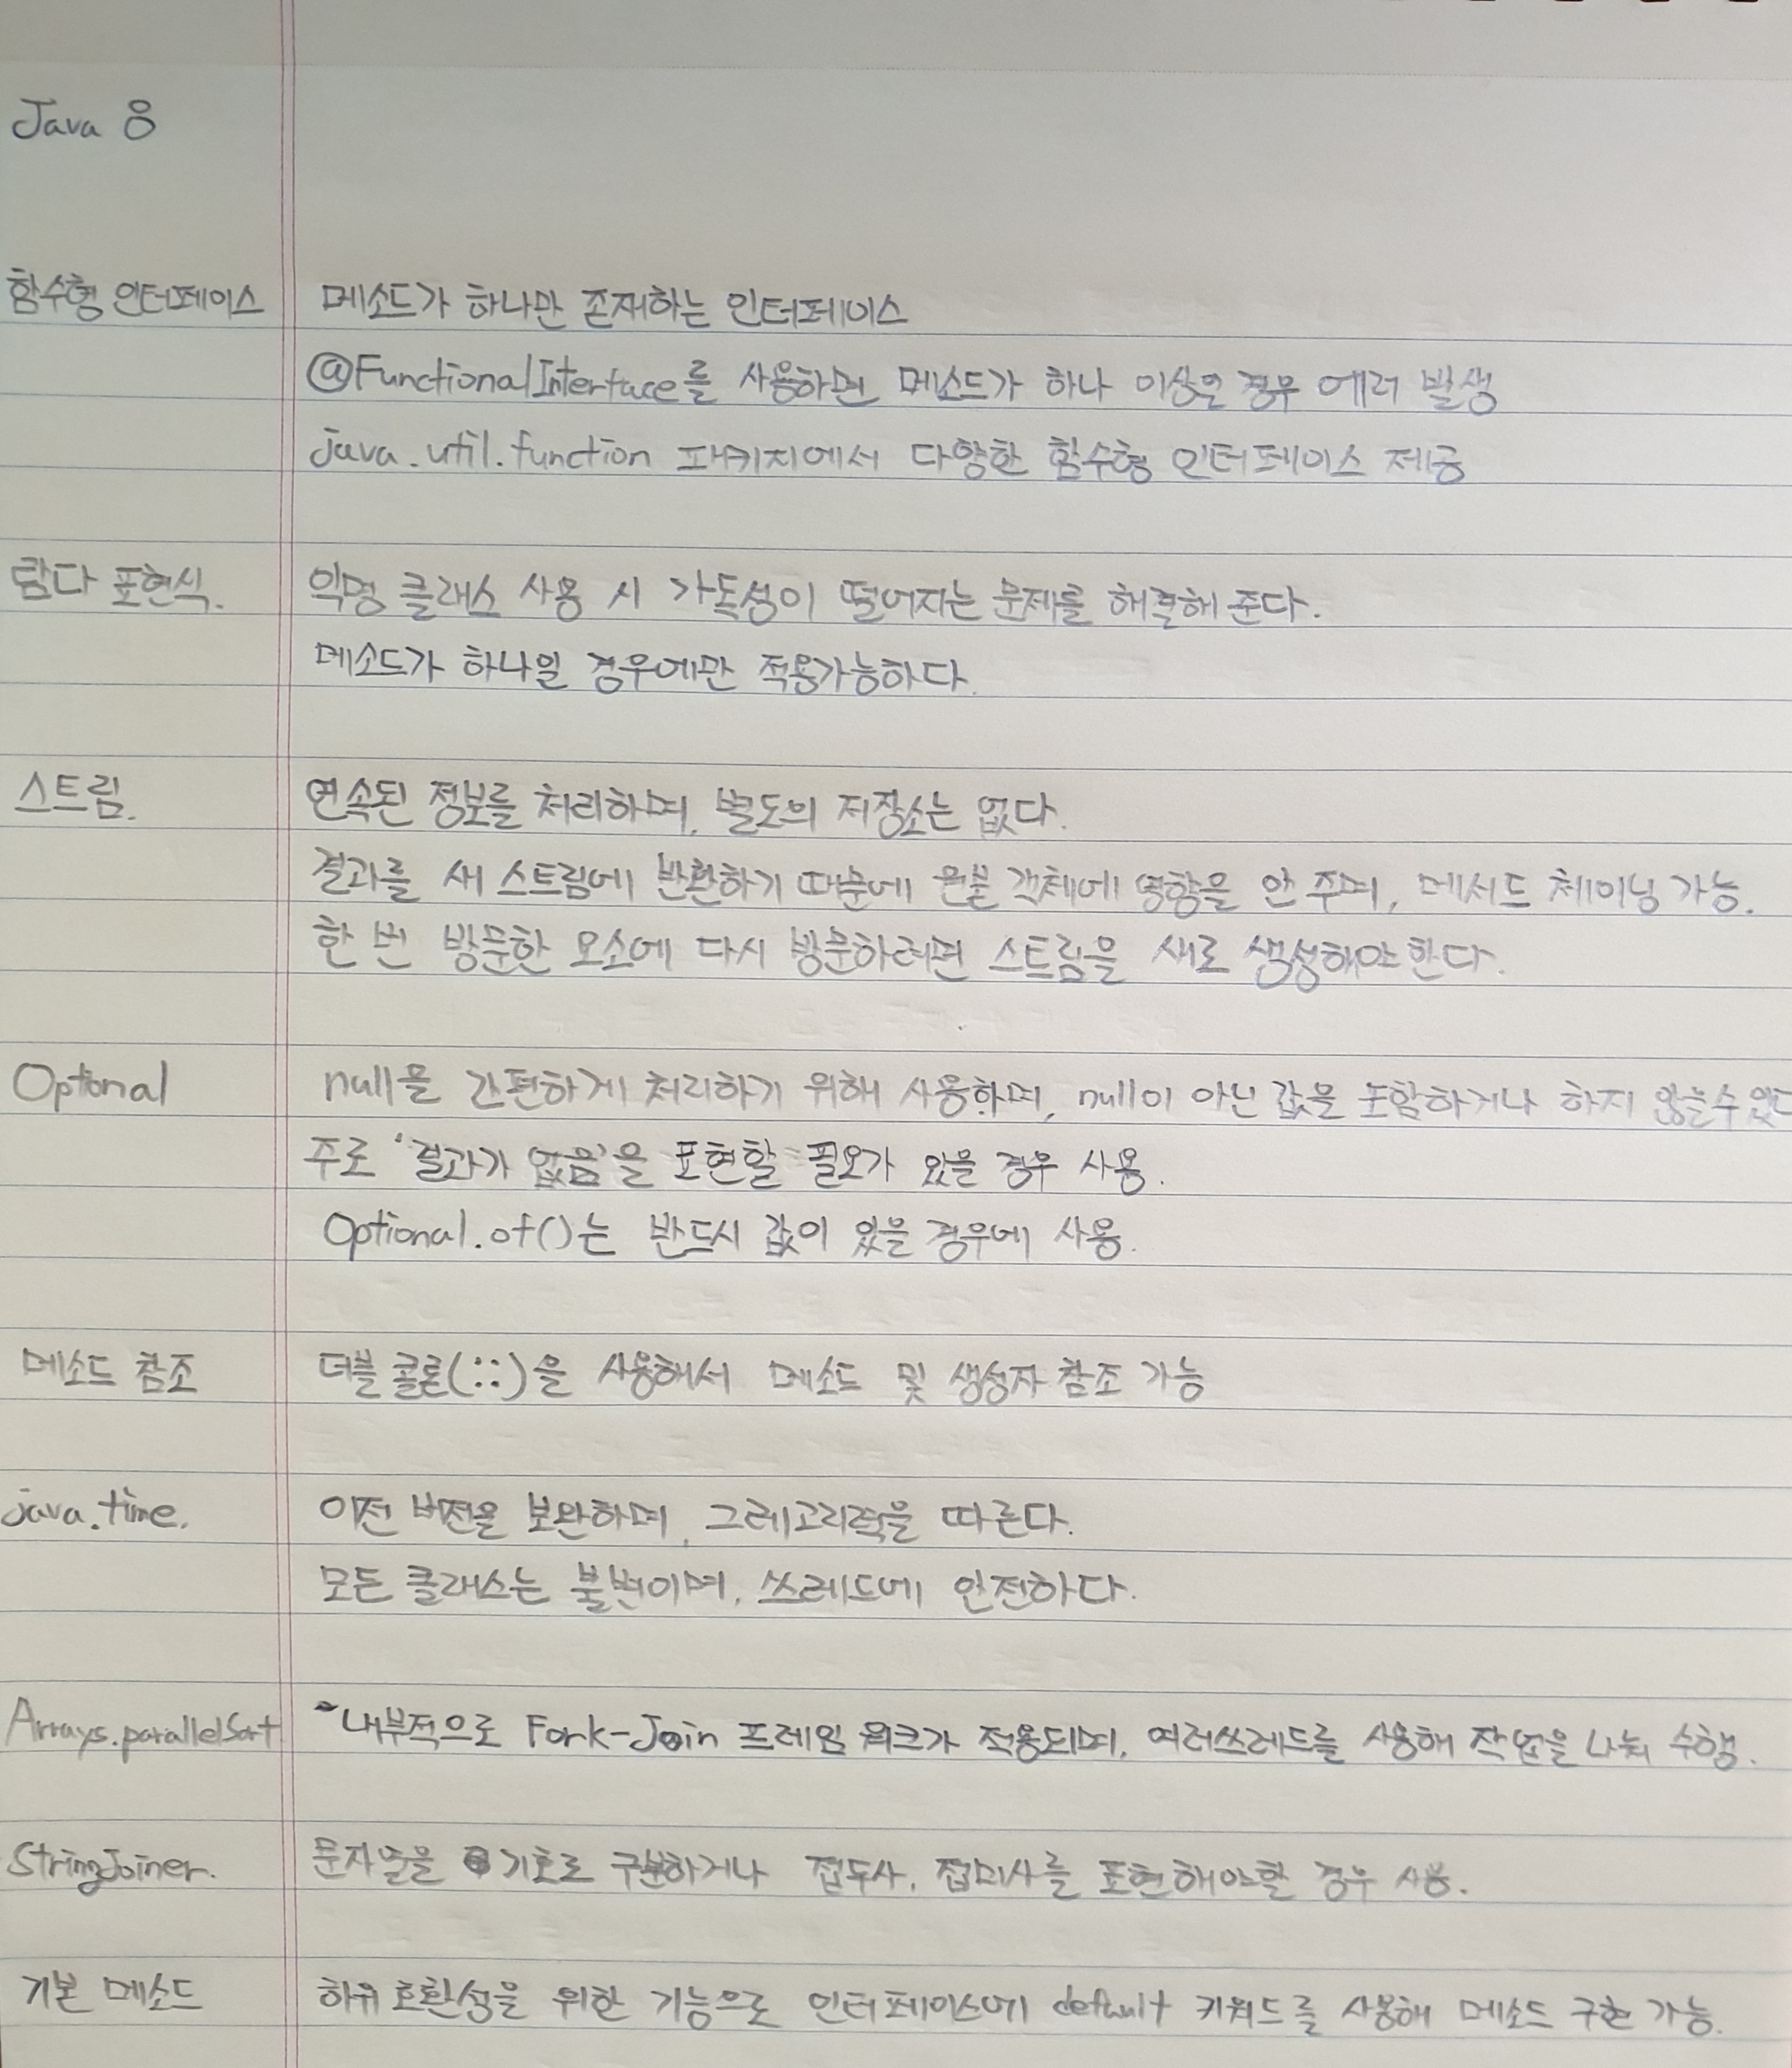 Java 8
함수형 인터페이스 메소드가 하나만 존재하는 인터페이스
@FunctionalInterface를 사용하면 메소드가 하나 이상일 경우 에러 발생
java.util.function 패키지에서 다양한 함수형 인터페이스 제공
람다 표현식. 익명 클래스 사용 시 가독성이 떨어지는 문제를 해결해 준다.
메소드가 하나일 경우에만 적용가능하다.
스트림. 연속된 정보를 처리하며, 별도의 저장소는 없다.
결과를 새 스트림에 반환하기 때문에 원본 객체에 영향을 안 주며, 메서드 체이닝 가능.
한 번 방문한 요소에 다시 방문하려면 스트림을 새로 생성해야한다.
Optional null을 간편하게 처리하기 위해 사용하며, null이 아닌 값을 포함하거나 하지 않을 수 있다
주로 '결과가 없음'을 표현할 필요가 있을 경우 사용.
Optional.of()는 반드시 값이 있을 경우에 사용.
메소드 참조 더블 콜론(::)을 사용해서 메소드 및 생성자 참조 가능
java.time. 이전 버전을 보완하며, 그레고리력을 따른다.
모든 클래스는 불변이며, 쓰레드에 안전하다.
Arrays.parallelSort 내부적으로 Fork-Join 프레임 워크가 적용되며, 여러쓰레드를 사용해 작업을 나눠 수행.
StringJoiner. 문자열을 기호로 구분하거나 접두사, 접미사를 표현해야할 경우 사용.
기본 메소드 하위 호환성을 위한 기능으로 인터페이스에 default 키워드를 사용해 메소드 구현 가능.